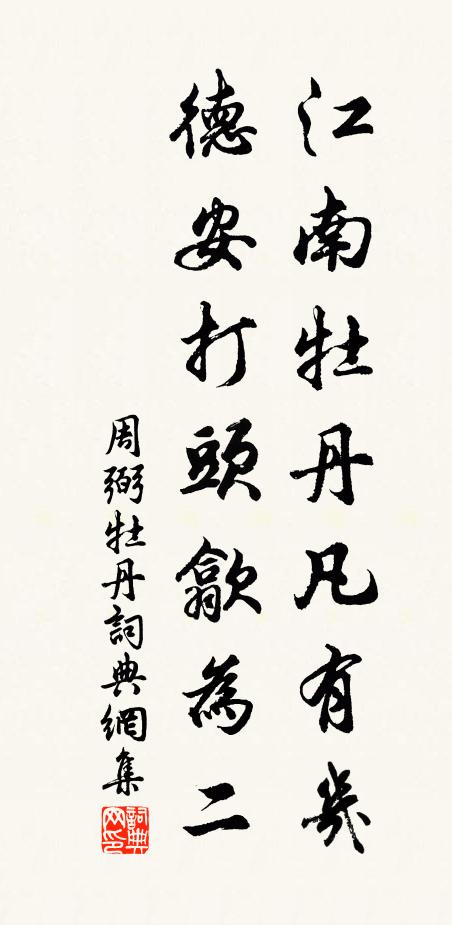 江南牡丹凡有幾
德安打頭歙為二
周弼牡丹詞典網集
詞典网印